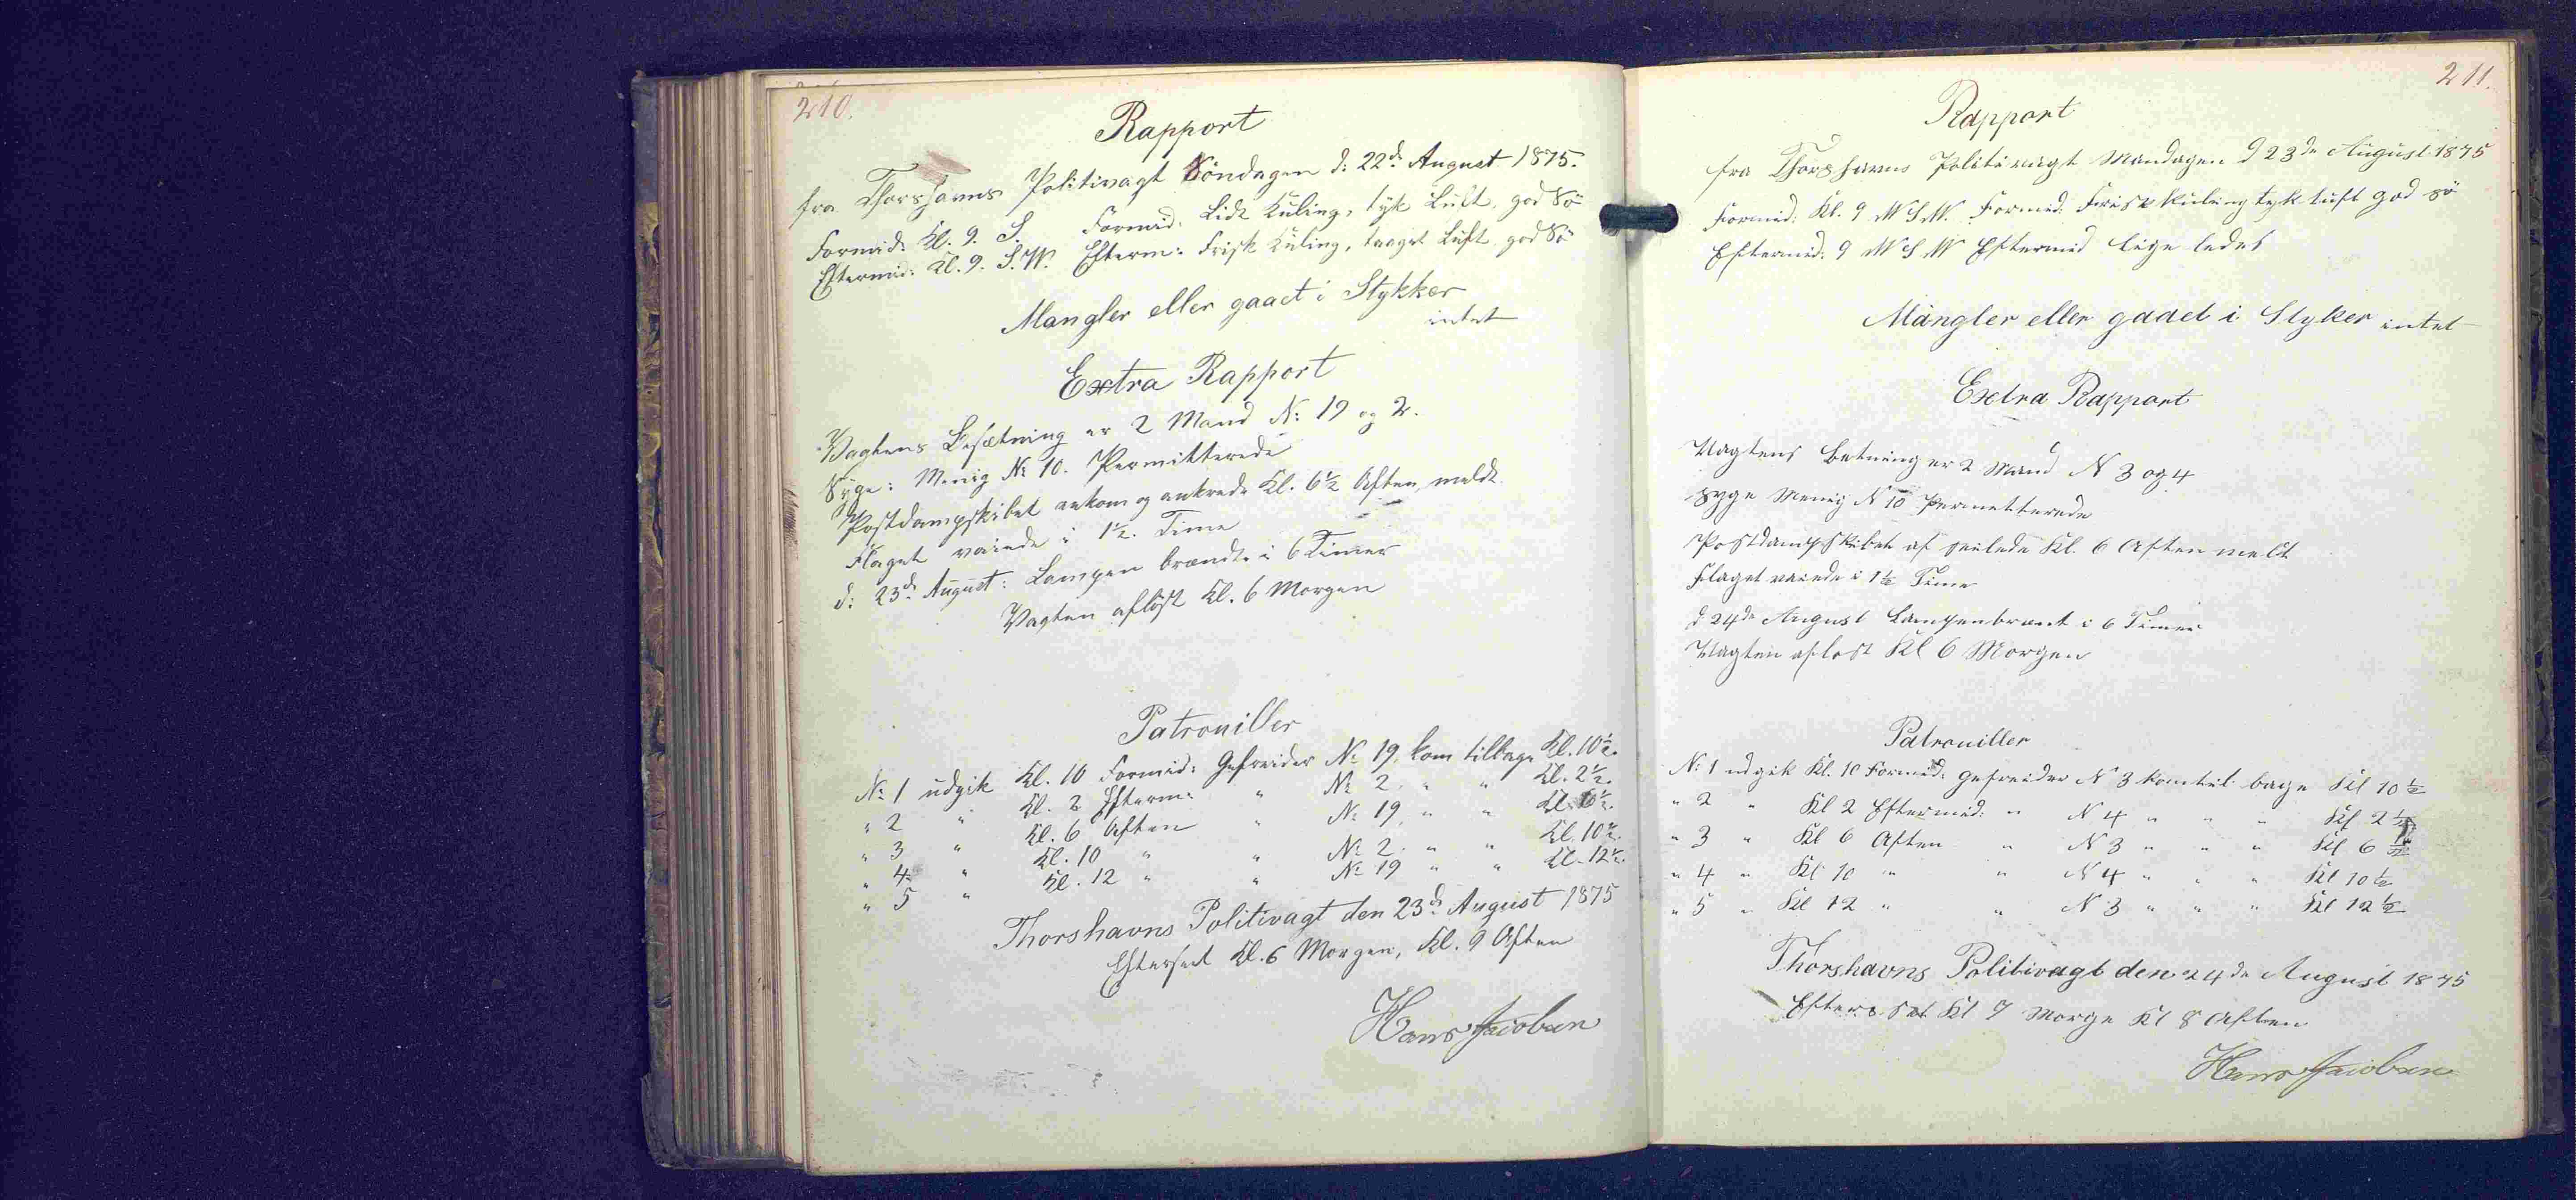 210.
Rapport
fra Thorshavns Politivagt Søndagen d: 22d. August 1875.
Formid: Kl. 9. S. Formid. Lidt Kuling, tyk Luft, god Sö
Eftermid: Kl. 9. S.W. Efterm: Frisk Kuling, taaget Luft, god Sö
Mangler eller gaaet i Stykker
intet
Extra Rapport
Vagtens Besætning er 2 Mand N: 19 og 2.
Syge: Menig N: 10. Permitterede
Postdampskibet ankom og ankrede Kl. 6½ Aften, meldt
Flaget vaiede i 1½ Time
d: 23d. August: Lampen brændte i 6 Timer
Vagten aflöst Kl. 6 Morgen
Patrouiller
N: 1 udgik Kl. 10 Formid: Gefreider N: 19, kom tilbage Kl. 10½.
" 2 " Kl. 2 Efterm: " N: 2. " " Kl. 2½.
" 3 " Kl. 6 Aften " N: 19. " " Kl. 6½.
" 4 " Kl. 10 " " N: 2. " " Kl. 10½.
" 5 " Kl. 12 " " N: 19 " " Kl. 12½.
Thorshavns Politivagt den 23d. August 1875
Efterseet Kl. 6 Morgen, Kl. 9 Aften
Hans Jacobsen
211.
Rapport
fra Thorshavns Politivagt Mandagen d 23de August 1875
Formid: Kl. 9 WSW. Formid: Frisk Kuling tyk luft god sö
Eftermid: 9 WSW Eftermid lige ledes
Mangler eller gaaet i Styker intet
Extra Rapport
Vagtens Betning er 2 Mand N 3 og 4
syge Menig N 10 Permetterede
Postdampskibet af seilede Kl. 6 Aften melt
Flaget vaiede i 1½ Time
d 24de August Lampen brænt i 6 Timer
Vagten aflost Kl 6 Morgen
Patrouiller
N: 1 udgik Kl. 10 Formid: gefreider N 3 kom til bage Kl 10½
" 2 " Kl 2 Eftermid: " N 4 " " " Kl 2½
" 3 " Kl 6 Aften " N 3 " " " Kl 6½
" 4 " Kl 10 " " N 4 " " " Kl 10½
" 5 " Kl 12 " " N 3 " " " Kl 12½
Thorshavns Politivagt den 24de August 1875
Efters set Kl 7 Morge Kl 8 Aften
Hans Jacobsen